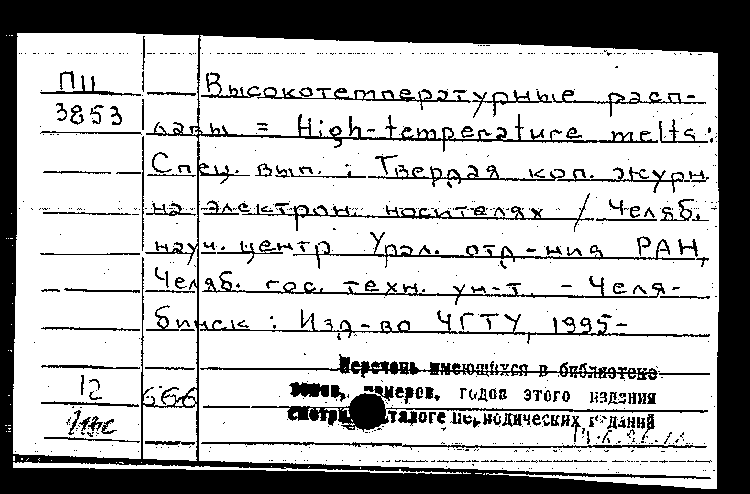 П11
3853
Высокотемпературные расп-
лавы = High-temperature melts:
Спец. вып. : Твердая коп. журн.
на электрон. носителях / Челяб.
науч. центр Урал. отд-ния РАН,
Челяб. гос. техн. ун-т. - Челя-
бинск : Изд-во ЧГТУ, 1995-
Перечень имеющихся в библиотеке
томов, номеров, годов этого издания
смотри каталоге периодических изданий
12
666